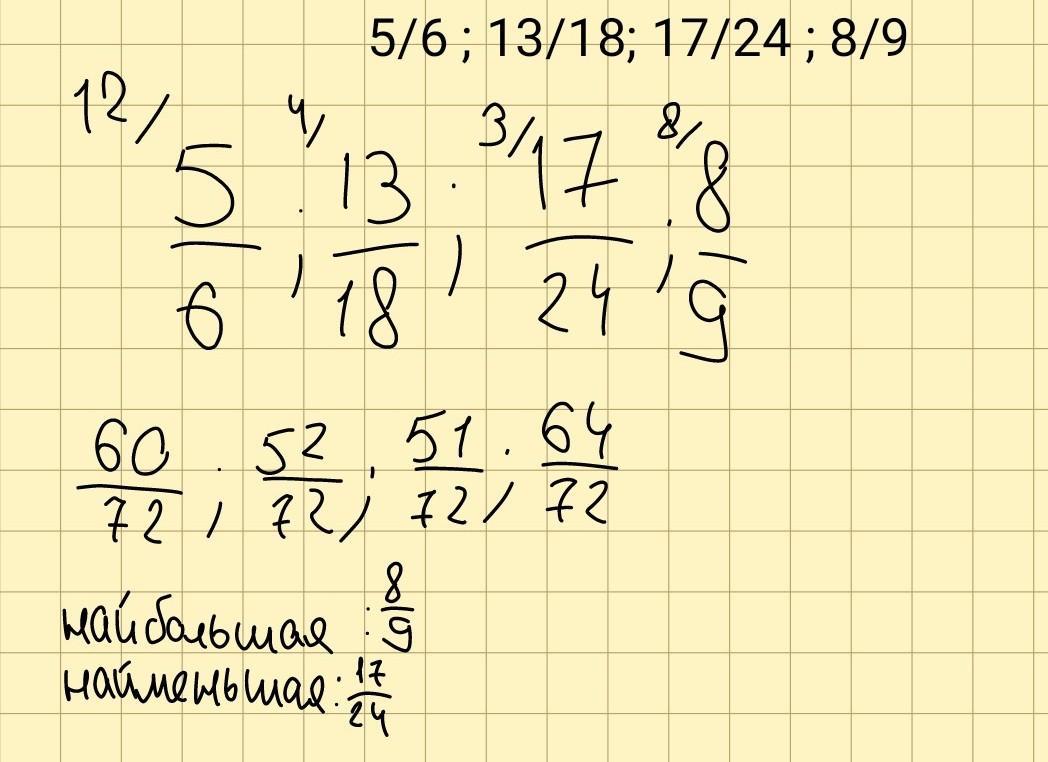 5/6 ; 13/18; 17/24 ; 8/9
12/ 4/ 3/ 8/
5/6 ; 13/18 ; 17/24 ; 8/9
60/72 ; 52/72 ; 51/72 ; 64/72
найбольшая : 8/9
найменьшая : 17/24